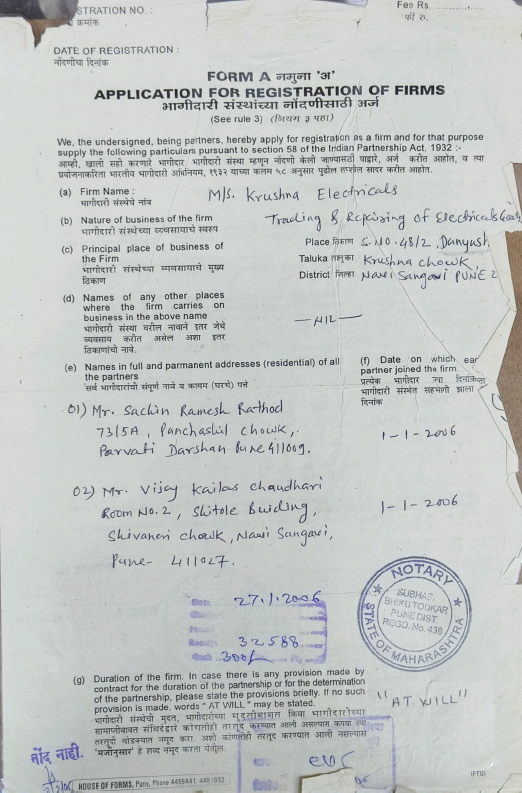 STRATION NO. :
क्रमांक
Fee Rs. ...............
फी रु.
DATE OF REGISTRATION :
नोंदणीचा दिनांक
FORM A नमुना 'अ'
APPLICATION FOR REGISTRATION OF FIRMS
भागीदारी संस्थांच्या नोंदणीसाठी अर्ज
(See rule 3) (नियम ३ पहा)
We, the undersigned, being partners, hereby apply for registration as a firm and for that purpose
supply the following particulars pursuant to section 58 of the Indian Partnership Act, 1932 :-
आम्ही, खाली सही करणारे भागीदार भागीदारी संस्था म्हणून नोंदणी केली जाण्यासाठी याद्वारे, अर्ज करीत आहोत, व त्या
प्रयोजनाकरिता भारतीय भागीदारी अधिनियम, १९३२ याच्या कलम ५८ अनुसार पुढील तपशील सादर करीत आहोत.
(a) Firm Name : M/s. Krushna Electricals
भागीदारी संस्थेचे नांव
(b) Nature of business of the firm Trading & Repairing of Electricals Goods
भागीदारी संस्थेच्या व्यवसायाचे स्वरुप
(c) Principal place of business of Place ठिकाण S.NO. 48/2, Danyush
the Firm Taluka तालुका Krushna chowk,
भागीदारी संस्थेच्या व्यवसायाचे मुख्य District जिल्हा Navi Sangavi PUNE 2
ठिकाण
(d) Names of any other places
where the firm carries on
business in the above name — NIL —
भागीदारी संस्था वरील नावाने इतर जेथे
व्यवसाय करीत असेल अशा इतर
ठिकाणांची नावे.
(e) Names in full and parmanent addresses (residential) of all
the partners
सर्व भागीदारांची संपूर्ण नावे व कायम (घरचे) पत्ते
(f) Date on which ear
partner joined the firm.
प्रत्येक भागीदार ज्या दिनांकास
भागीदारी संस्थेत सहभागी झाला
दिनांक
01) Mr. Sachin Ramesh Rathod
73/5A, Panchashil Chowk,.
Parvati Darshan Pune 411009.
1-1-2006
02) Mr. Vijay Kailas chaudhari
Room No. 2, Shitole Buiding,
Shivaneri chowk, Navi Sangavi,
Pune- 411027.
1-1-2006
27.1.2006
32588
300/-
NOTARY
SUBHAS
BHIKUTODKAR
PUNE DIST.
REGD. No. 436
STATE OF MAHARASHTRA
(g) Duration of the firm. In case there is any provision made by
contract for the duration of the partnership or for the determination
of the partnership, please state the provisions briefly. If no such
provision is made, words " AT WILL " may be stated.
"AT WILL"
भागीदारी संस्थेची मुदत, भागीदारीच्या मुदतीबाबत किंवा भागीदारीच्या
समाप्तीबाबत संविदेद्वारे कोणतीही तरतूद करण्यात आली असल्यास कृपया त्या
तरतुदी थोडक्यात नमूद करा. अशी कोणतीही तरतूद करण्यात आली नसल्यास
'मर्जीनुसार' हे शब्द नमूद करता येतील.
नोंद नाही.
HOUSE OF FORMS, Pune, Phone 4458441, 4451932
(PTO)